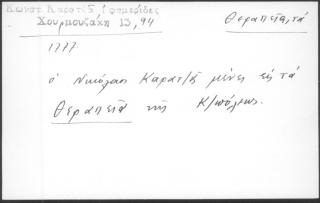 Κωνστ Καρατζᾶ, Ἐφημερίδες
Χουρμουζάκη 13, 94
Θεραπεῖα, τά
1777.
ὁ Νικόλαος Καρατζᾶς μένει εἰς τά
Θεραπειᾶ τῆς Κ/πόλεως.